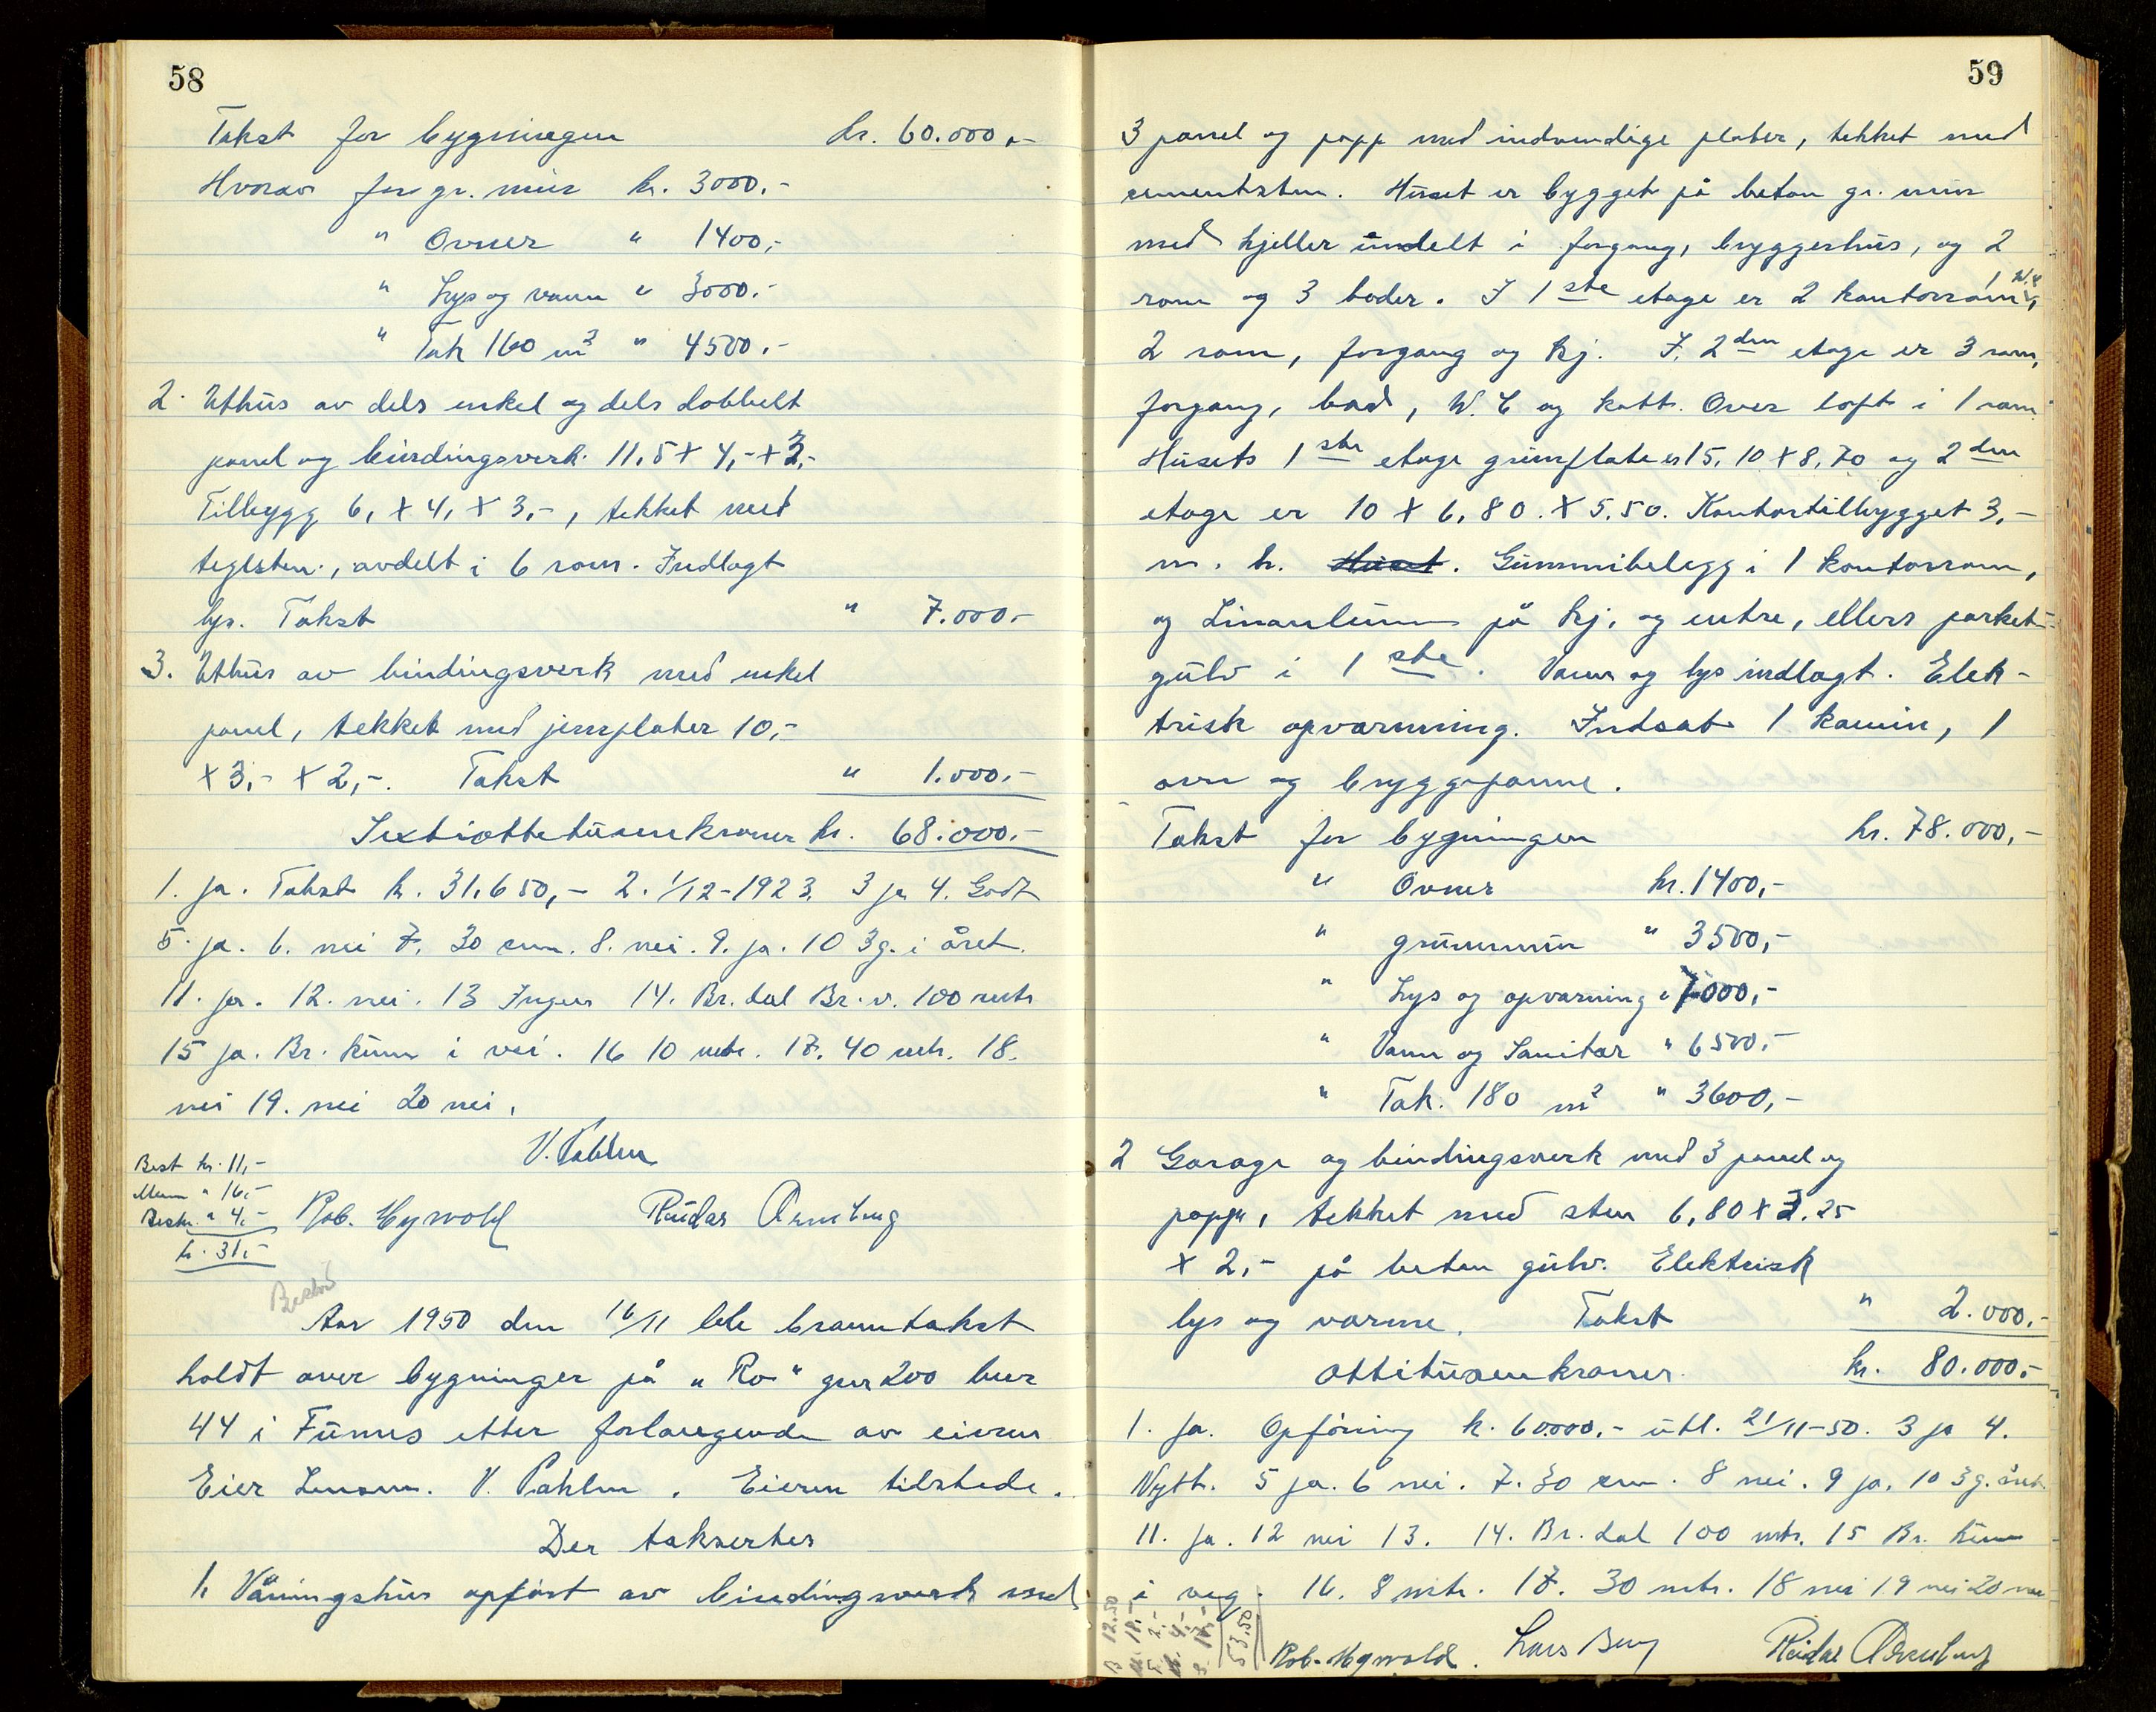 58
Takst for bygningen kr. 60.000,-
Hvorav for gr. mur kr. 3000.-
" Ovner " 1400,-
" Lys og vann " 3000.-
" Tak 160 m² " 4500.-
2. Uthus av dels enkel og dels dobbelt
panel og bindingsverk 11,5 x 4,- x 3,-
Tilbygg 6, x 4, x 3,-, tekket med
teglsten, avdelt i 6 rom. Indlagt
lys. Takst " 7.000.-
3. Uthus av bindingsverk med enkel
panel, tekket med jernplater 10,-
x 3,- x 2,-. Takst " 1.000.-
Sextiottetusenkroner kr. 68.000.-
1. ja. Takst kr. 31.650,- 2. 1/12-1923. 3 ja 4. Godt
5. ja. 6. nei 7. 30 cm. 8. nei. 9. ja. 10 3 g. i året.
11. ja. 12. nei. 13 Ingen 14. Br. dal Br. v. 100 mtr
15 ja. Br. kum i vei. 16 10 mtr. 17. 40 mtr. 18.
nei 19. nei 20 nei.
V. Pahlm
Best kr. 11,-
Menn " 16,-
Beskr. " 4,-
kr. 31,-
Rob. Hygvold Reidar Arneberg
Aar 1950 den 16/11 ble branntakst
holdt over bygninger på "Ro" gnr 200 bnr
44 i Furnes etter forlangende av eieren
Eier Lensm. V. Pahlm. Eieren tilstede.
Der taksertes
1. Våningshus opført av bindingsverk med
59
3 panel og papp med indvendige plater, tekket med
sementsten. Huset er bygget på beton gr. mur
med kjeller inndelt i forgang, bryggerhus, og 2
rom og 3 boder. I 1ste etage er 2 kontorrom, 1 W.C
2 rom, forgang og kj. I 2den etage er 3 rom,
forgang, bad, W. C og kott. Over loft i 1 rom.
Husets 1ste etage grunflate er 15,10 x 8,70 og 2den
etage er 10 x 6,80. x 5.50. Kontortilbygget 3,-
m. h. Huset. Gummibelegg i 1 kontorrom,
og Linoleum på kj. og entre, ellers parket-
gulv i 1ste. Vann og lys indlagt. Elek-
trisk opvarmning. Indsat 1 kamin, 1
ovn og bryggepanne.
Takst for bygningen kr. 78.000,-
" Ovner kr. 1400,-
" grunnmur " 3500,-
" Lys og opvarning " 7000,-
" Vann og Sanitær " 6500,-
" Tak. 180 m² " 3600,-
2 Garage og bindingsverk med 3 panel og
papp, tekket med sten 6,80 x 3.25
x 2,- på beton gulv. Elektrisk
lys og varme. Takst " 2.000.-
Ottitusenkroner kr. 80.000,-
1. ja. Opføring kr. 60000.- utl. 21/11-50. 3 ja 4.
Nytt. 5 ja. 6 nei. 7. 30 cm. 8 nei. 9 ja. 10 3 g. året.
11. ja. 12 nei 13. 14. Br. dal 100 mtr. 15 Br. kum
i veg. 16. 8 mtr. 17. 30 mtr. 18 nei 19 nei 20 nei
Rob. Hygvold. Lars Berg Reidar Arneberg
B 12.50
53.50